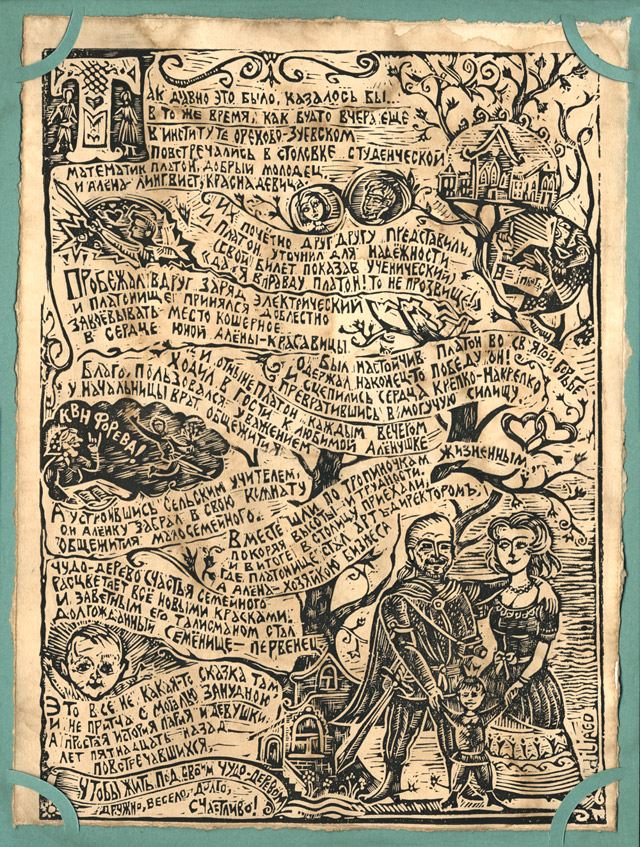 ТАК ДАВНО ЭТО БЫЛО, КАЗАЛОСЬ БЫ...
В ТО ЖЕ ВРЕМЯ, КАК БУДТО ВЧЕРА ЕЩЕ
В ИНСТИТУТЕ ОРЕХОВО-ЗУЕВСКОМ
ПОВСТРЕЧАЛИСЬ В СТОЛОВКЕ СТУДЕНЧЕСКОЙ
МАТЕМАТИК ПЛАТОН, ДОБРЫЙ МОЛОДЕЦ
И АЛЕНА-ЛИНГВИСТ, КРАСНА ДЕВИЦА.
ИХ ПОЧЕТНО ДРУГ ДРУГУ ПРЕДСТАВИЛИ,
И ПЛАТОН УТОЧНИЛ ДЛЯ НАДЕЖНОСТИ
(СВОЙ БИЛЕТ ПОКАЗАВ УЧЕНИЧЕСКИЙ),
ДА, Я ВПРАВДУ ПЛАТОН! ТО НЕ ПРОЗВИЩЕ!
ПРОБЕЖАЛ ВДРУГ ЗАРЯД ЭЛЕКТРИЧЕСКИЙ
И ПЛАТОНИЩЕ ПРИНЯЛСЯ ДОБЛЕСТНО
ЗАВОЁВЫВАТЬ МЕСТО КОШЕРНОЕ
В СЕРДЦЕ ЮНОЙ АЛЕНЫ-КРАСАВИЦЫ.
БЫЛ НАСТОЙЧИВ ПЛАТОН ВО СВЯТОЙ БОРЬБЕ
ОДЕРЖАЛ НАКОНЕЦ-ТО ПОБЕДУ ОН!
И СЦЕПИЛИСЬ СЕРДЦА КРЕПКО-НАКРЕПКО
ПРЕВРАТИВШИСЬ В МОГУЧУЮ СИЛИЩУ
И ОТНЫНЕ ПЛАТОН КАЖДЫМ ВЕЧЕРОМ
ХОДИЛ В ГОСТИ К ЛЮБИМОЙ АЛЕНУШКЕ
БЛАГО, ПОЛЬЗОВАЛСЯ УВАЖЕНИЕМ
У НАЧАЛЬНИЦЫ ВРАТ ОБЩЕЖИТИЯ
КВН ФОРЕВА!
А УСТРОИВШИСЬ СЕЛЬСКИМ УЧИТЕЛЕМ,
ОН АЛЕНКУ ЗАБРАЛ В СВОЮ КОМНАТУ
ОБЩЕЖИТИЯ МАЛОСЕМЕЙНОГО.
ВМЕСТЕ ШЛИ ПО ТРОПИНОЧКАМ ЖИЗНЕННЫМ
ПОКОРЯЯ ВЫСОТЫ И ТРУДНОСТИ
И В ИТОГЕ В СТОЛИЦУ ПРИЕХАЛИ,
ГДЕ ПЛАТОНИЩЕ СТАЛ АРТ-ДИРЕКТОРОМ,
А АЛЕНА - ХОЗЯЙКОЮ БИЗНЕСА
ЧУДО-ДЕРЕВО СЧАСТЬЯ СЕМЕЙНОГО
РАСЦВЕТАЕТ ВСЕ НОВЫМИ КРАСКАМИ.
И ЗАВЕТНЫМ ЕГО ТАЛИСМАНОМ СТАЛ
ДОЛГОЖДАННЫЙ СЕМЕНИЩЕ - ПЕРВЕНЕЦ
ЭТО ВСЕ НЕ КАКАЯ-ТО СКАЗКА ТАМ
И НЕ ПРИТЧА С МОРАЛЮ ЗАНУДНОЙ
А ПРОСТАЯ ИСТОРИЯ ПАРНЯ И ДЕВУШКИ,
ЛЕТ ПЯТНАДЦАТЬ НАЗАД
ПОВСТРЕЧАВШИХСЯ,
ЧТОБЫ ЖИТЬ ПОД СВОИМ ЧУДО-ДЕРЕВОМ
ДРУЖНО, ВЕСЕЛО, ДОЛГО,
СЧАСТЛИВО!